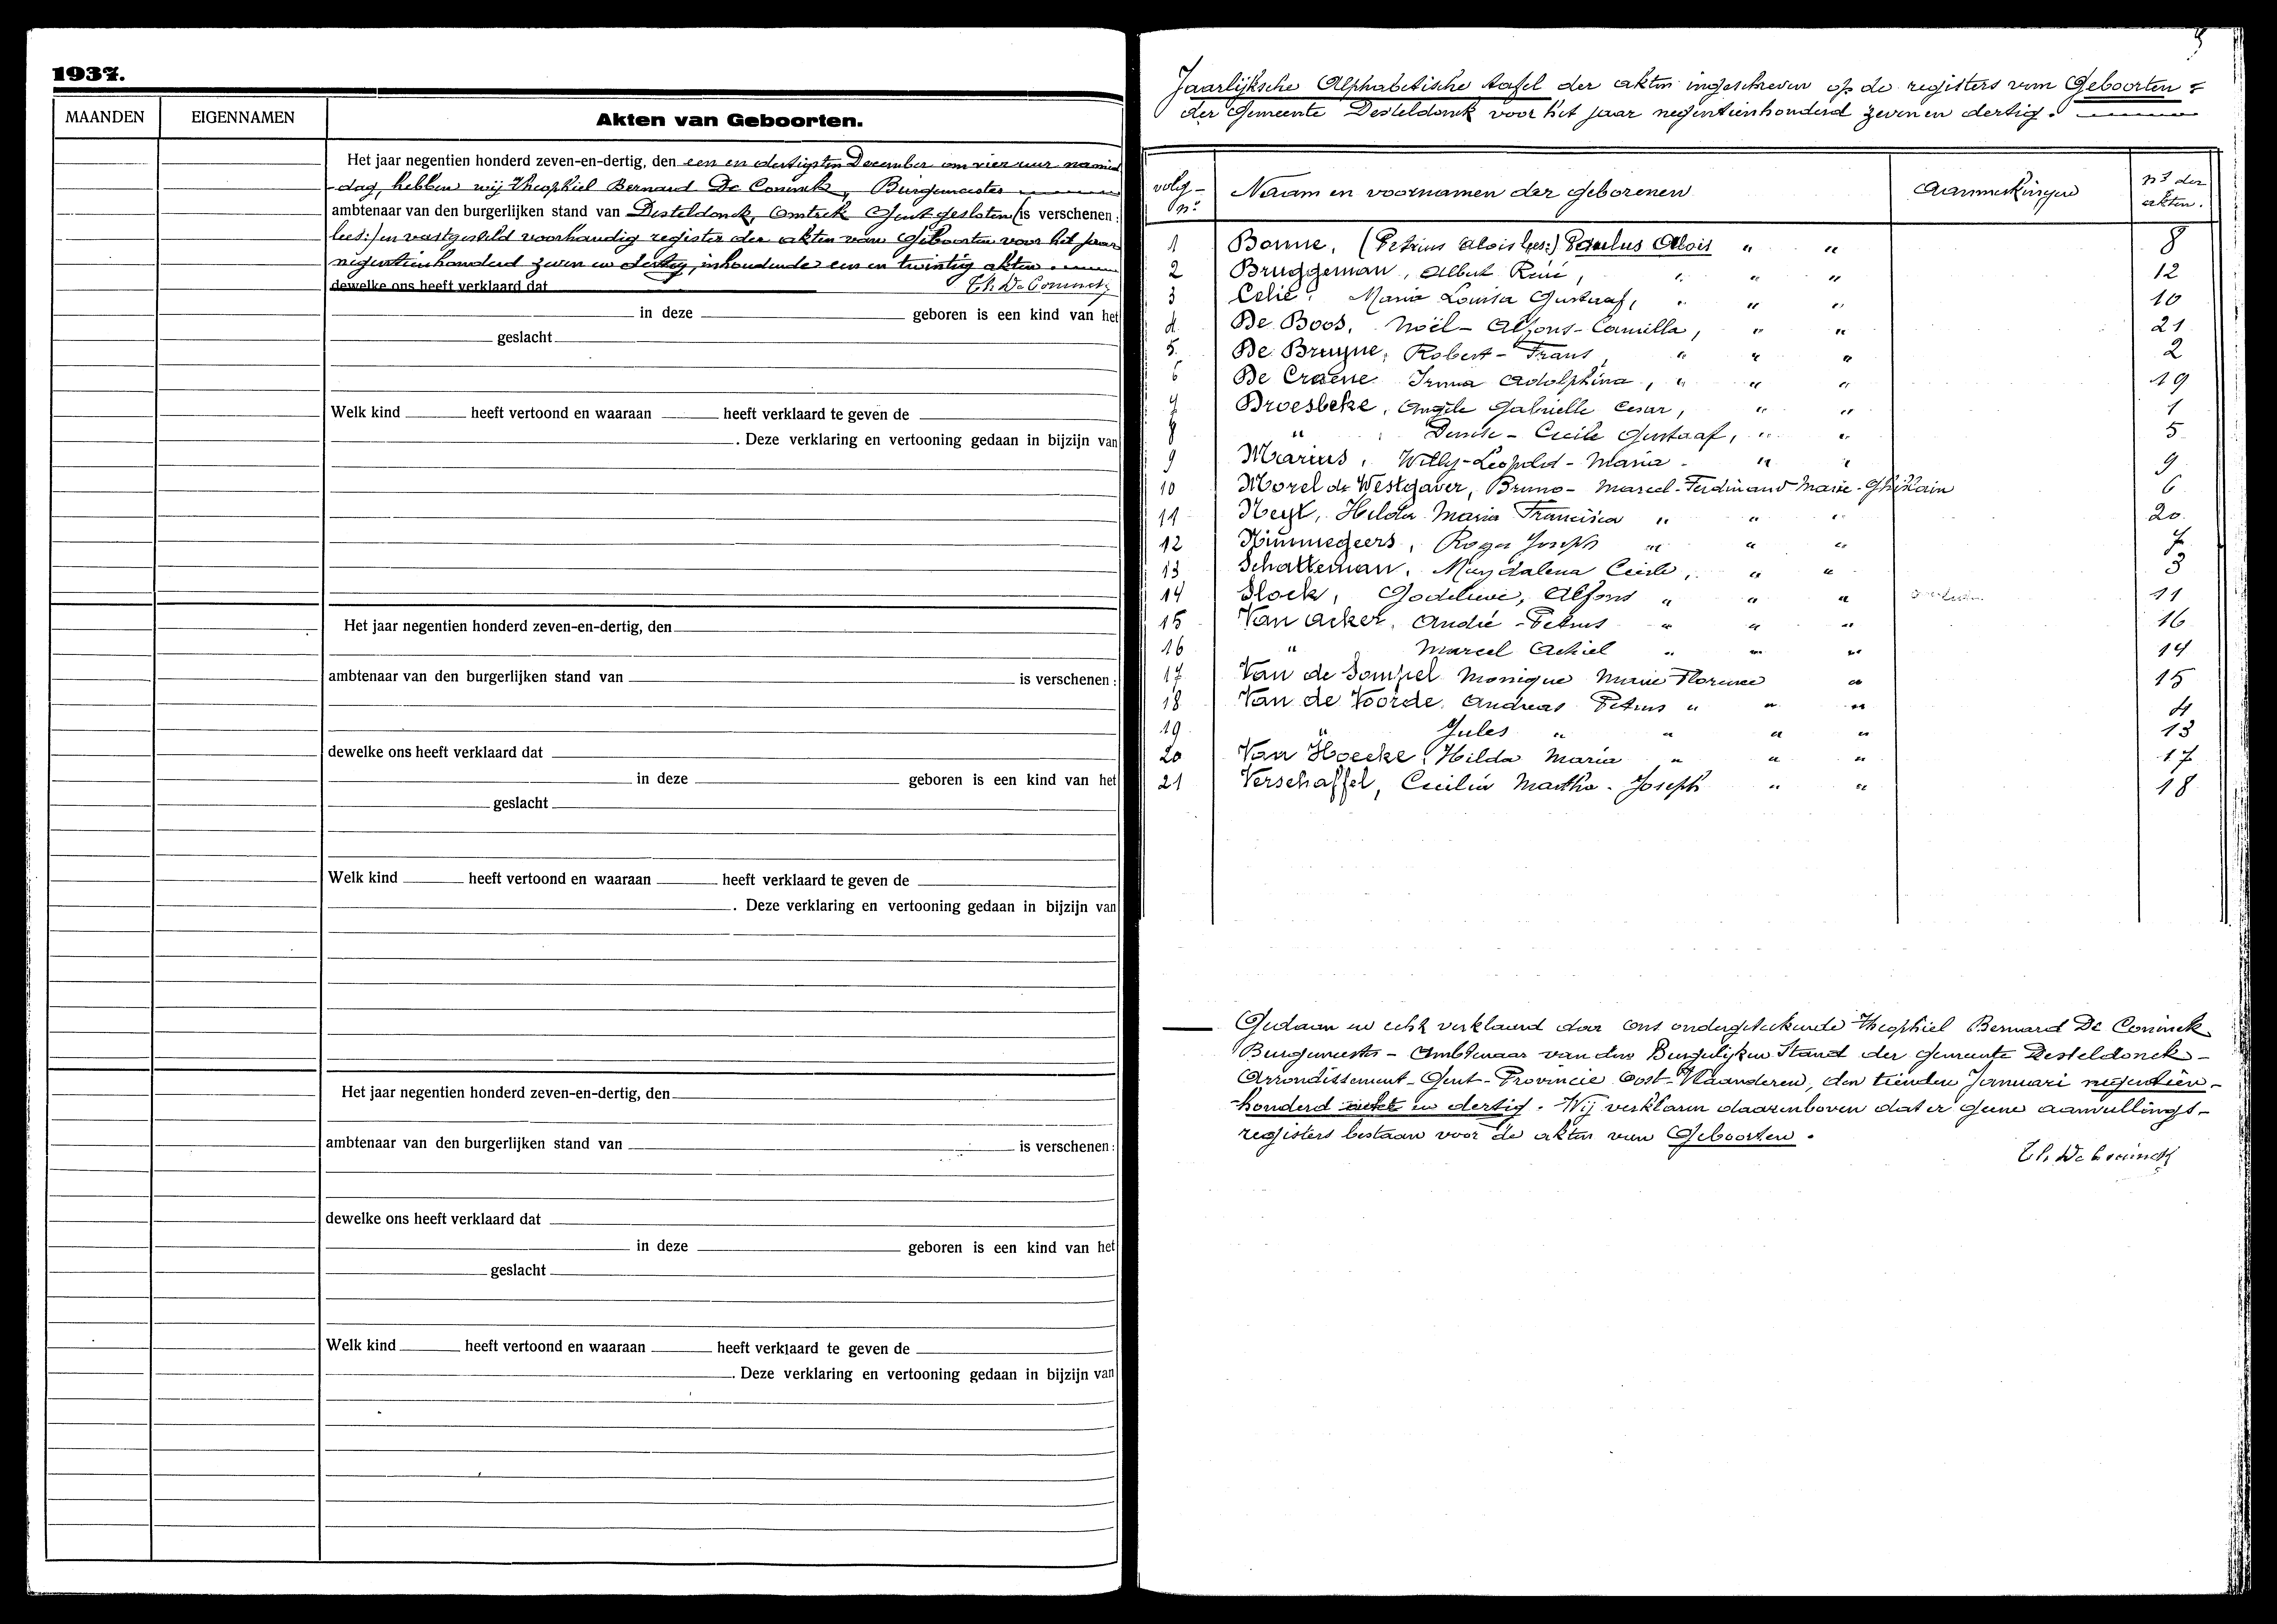 1937.
MAANDEN EIGENNAMEN Akten van Geboorten.
Het jaar negentien honderd zeven-en-dertig, den een en dertigsten December om vier uur namid
dag, hebben wij Theophiel Bernard De Coninck, Burgemeester
ambtenaar van den burgerlijken stand van Desteldonck, Omtrek Gent gesloten (is verschenen:
lees:) en vastgesteld voorhandig register der akten van Geboorten voor het jaar
negentienhonderd zeven en dertig, inhoudende een en twintig akten
dewelke ons heeft verklaard dat Th. De Coninck
in deze geboren is een kind van het
geslacht
Welk kind heeft vertoond en waaraan heeft verklaard te geven de
. Deze verklaring en vertooning gedaan in bijzijn van
Het jaar negentien honderd zeven-en-dertig, den
ambtenaar van den burgerlijken stand van is verschenen:
dewelke ons heeft verklaard dat
in deze geboren is een kind van het
geslacht
Welk kind heeft vertoond en waaraan heeft verklaard te geven de
. Deze verklaring en vertooning gedaan in bijzijn van
Het jaar negentien honderd zeven-en-dertig, den
ambtenaar van den burgerlijken stand van is verschenen:
dewelke ons heeft verklaard dat
in deze geboren is een kind van het
geslacht
Welk kind heeft vertoond en waaraan heeft verklaard te geven de
. Deze verklaring en vertooning gedaan in bijzijn van
Jaarlijksche Alphabetische tafel der akten ingeschreven op de registers van Geboorten =
der Gemeente Desteldonck voor het jaar negentienhonderd zeven en dertig.
volg- nr Naam en voornamen der geborenen Aanmerkingen nrs der akten.
1 Bonne, (Petrus Alois lees:) Paulus Alois " " 8
2 Bruggeman, Albert René, " " " 12
3 Celie, Maria Louisa Gustaaf, " " " 10
4 De Boos, Noël - Alfons - Camilla, " " 21
5. De Bruyne, Robert - Frans, " " " 2
6 De Craene Irma Adolphina, " " " 19
7 Broesbeke, Angèle Gabrielle Cesar, " " 1
8 " Denise - Cecile Gustaaf, " " 5
9 Marius, Willy - Leopold - Maria - " " 9
10 Morel de Westgaver, Bruno - Marcel - Ferdinand Marie - Ghislain 6
11 Neyt, Hilda Maria Francisca " " " 20
12 Nimmegeers, Roger Joseph " " " 7
13 Schatteman, Magdalena Cecile, " " 3
14 Slock, Godelieve, Alfons " " " 11
15 Van Acker, André - Petrus " " " 16
16 " Marcel Achiel " " " 14
17 Van de Sompel Monique Marie Florence " 15
18 Van de Voorde, Andreas Petrus " " " 4
19 " Jules " " " " 13
20 Van Hoecke, Hilda Maria " " " 17
21 Verschaffel, Cecilia Martha - Joseph " " 18
Gedaan en echt verklaard door ons ondergeteekende Theophiel Bernard De Coninck
Burgemeester - Ambtenaar van den Burgerlijken Stand der gemeente Desteldonck -
Arrondissement - Gent - Provincie Oost-Vlaanderen, den tienden Januari negentien-
honderd acht en dertig. Wij verklaren daarenboven dat er geene aanvullings-
registers bestaan voor de akten van Geboorten.
Th. De Coninck